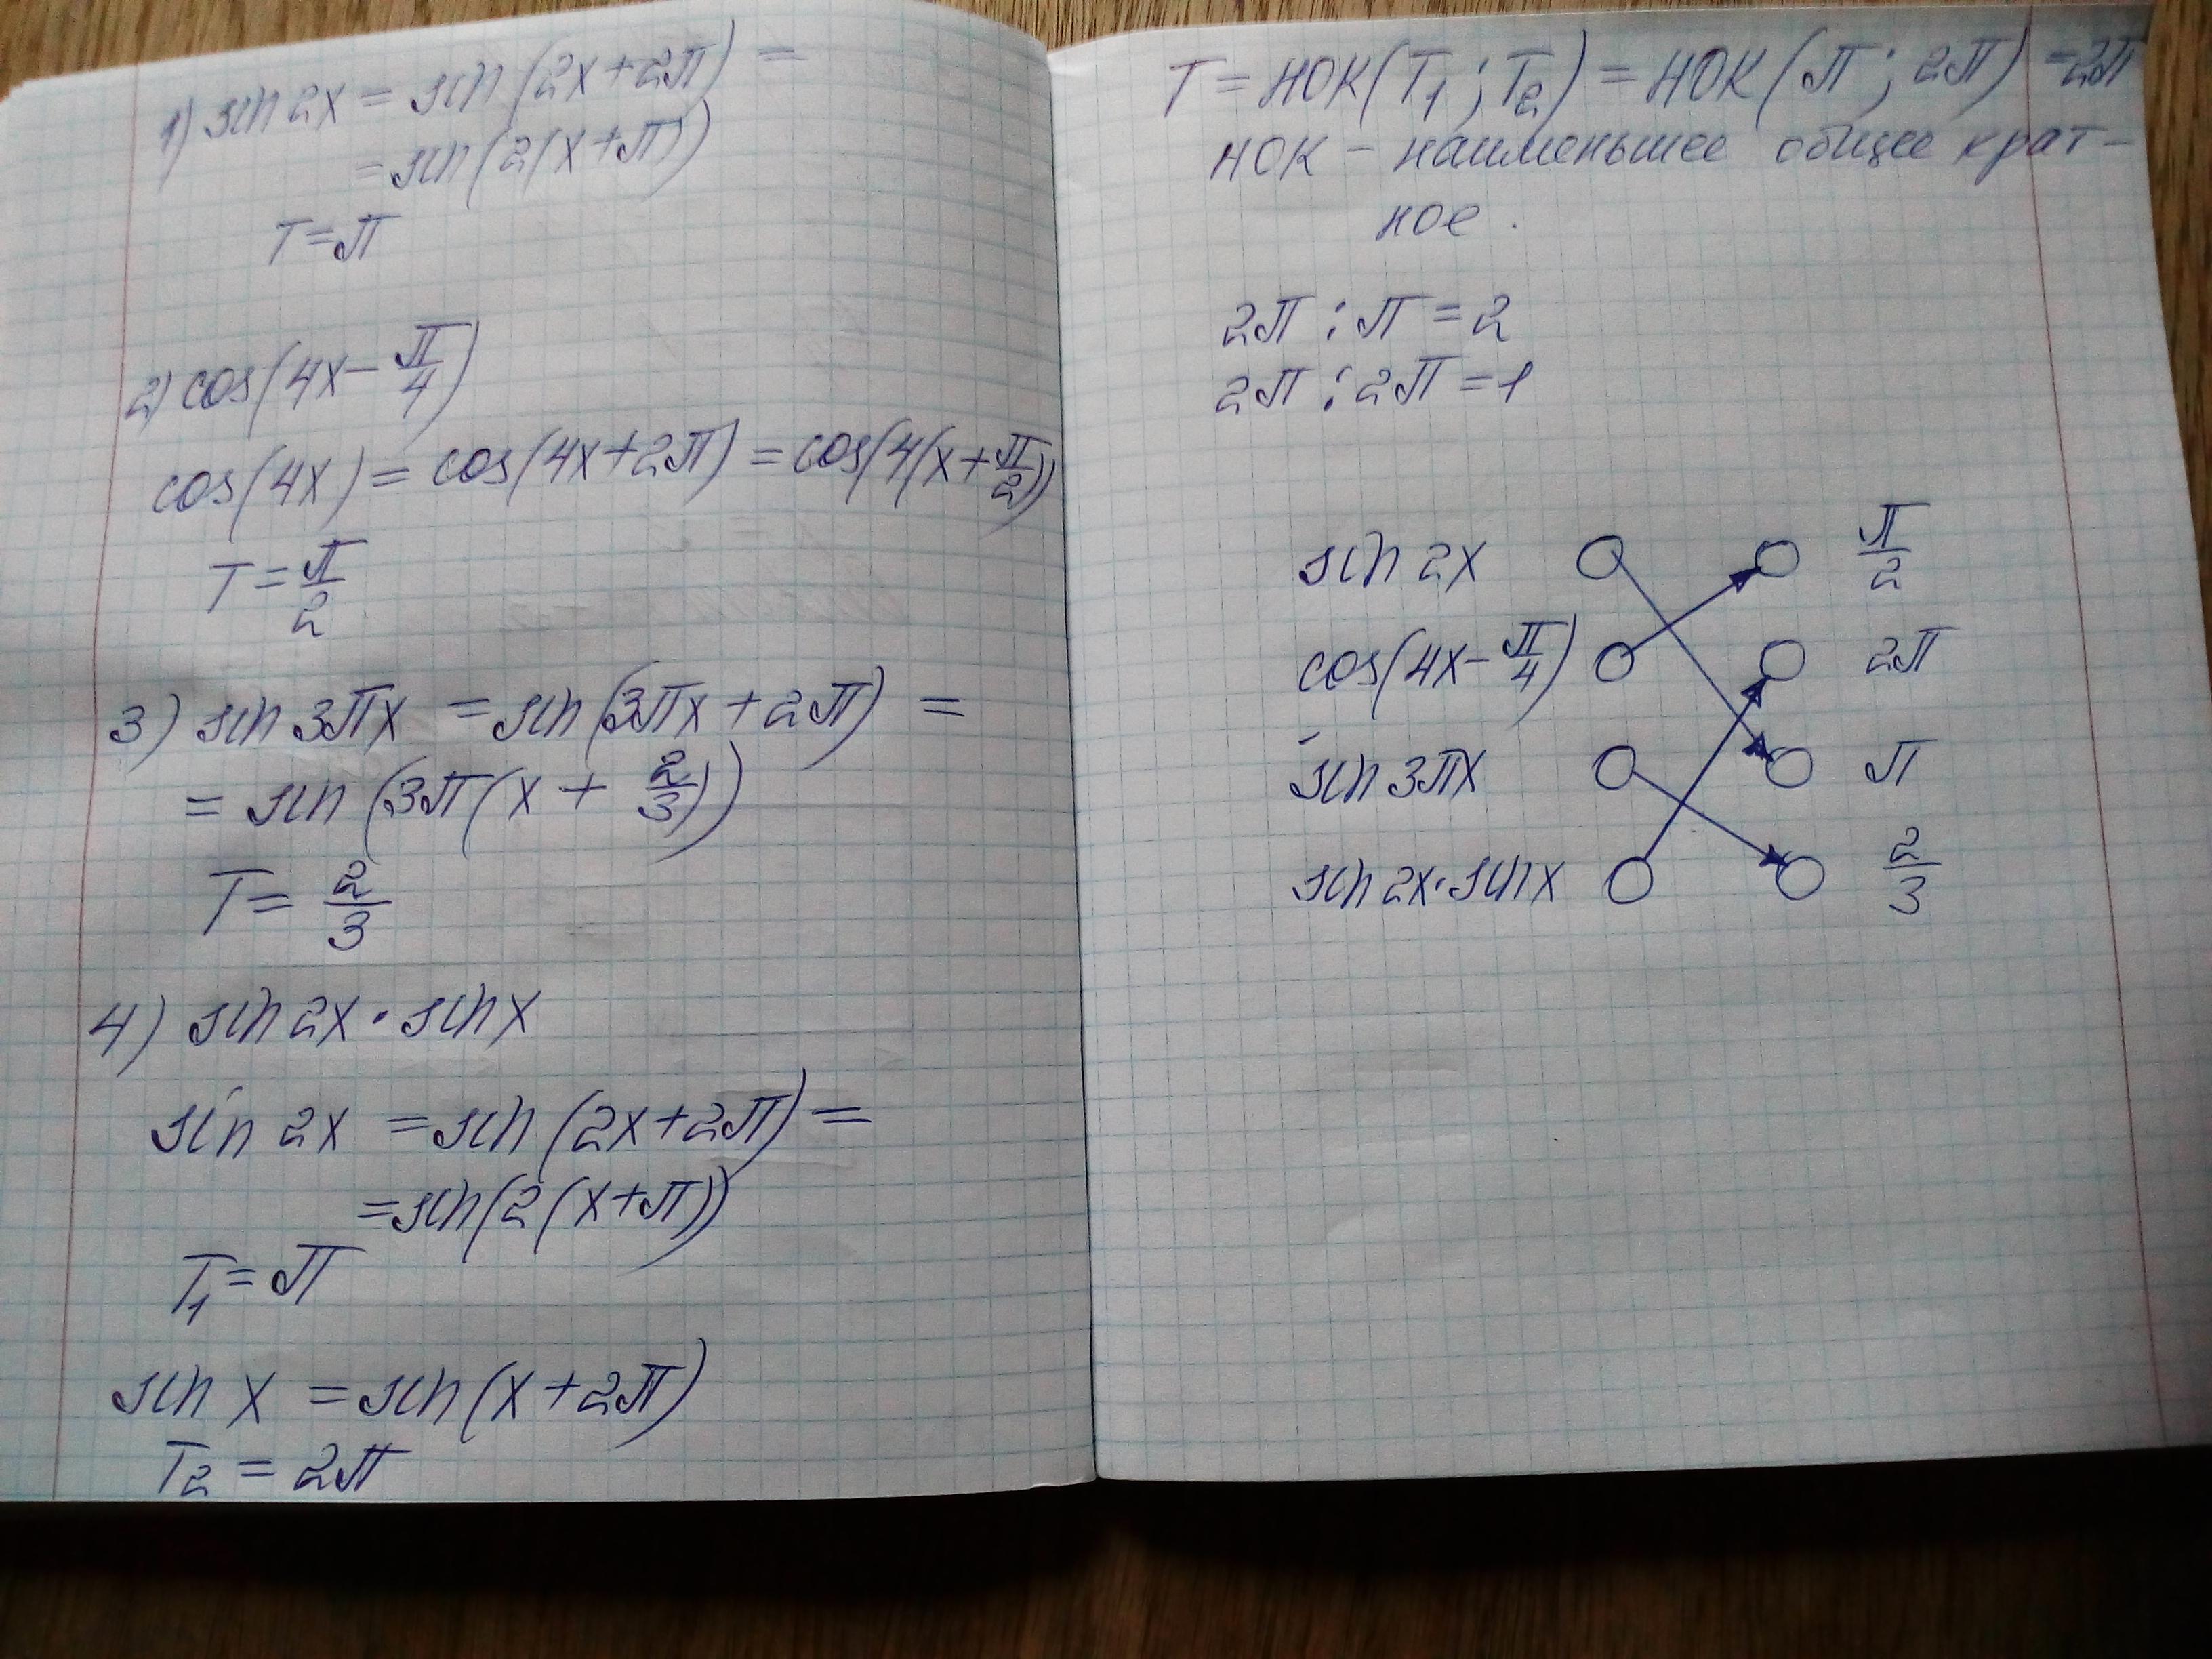 1) sin 2x = sin (2x+2π) =
= sin (2(x+π))
T=π
2) cos(4x-π/4)
cos(4x) = cos(4x+2π) = cos(4(x+π/2))
T=π/2
3) sin 3πx = sin (3πx + 2π) =
= sin (3π(x + 2/3))
T= 2/3
4) sin 2x · sin x
sin 2x = sin (2x+2π) =
= sin (2(x+π))
T₁=π
sin x = sin (x+2π)
T₂ = 2π
T = НОК(T₁; T₂) = НОК(π; 2π) = 2π
НОК - наименьшее общее крат-
ное.
2π : π = 2
2π : 2π = 1
sin 2x π/2
cos(4x-π/4) 2π
sin 3πx π
sin 2x·sin x 2/3